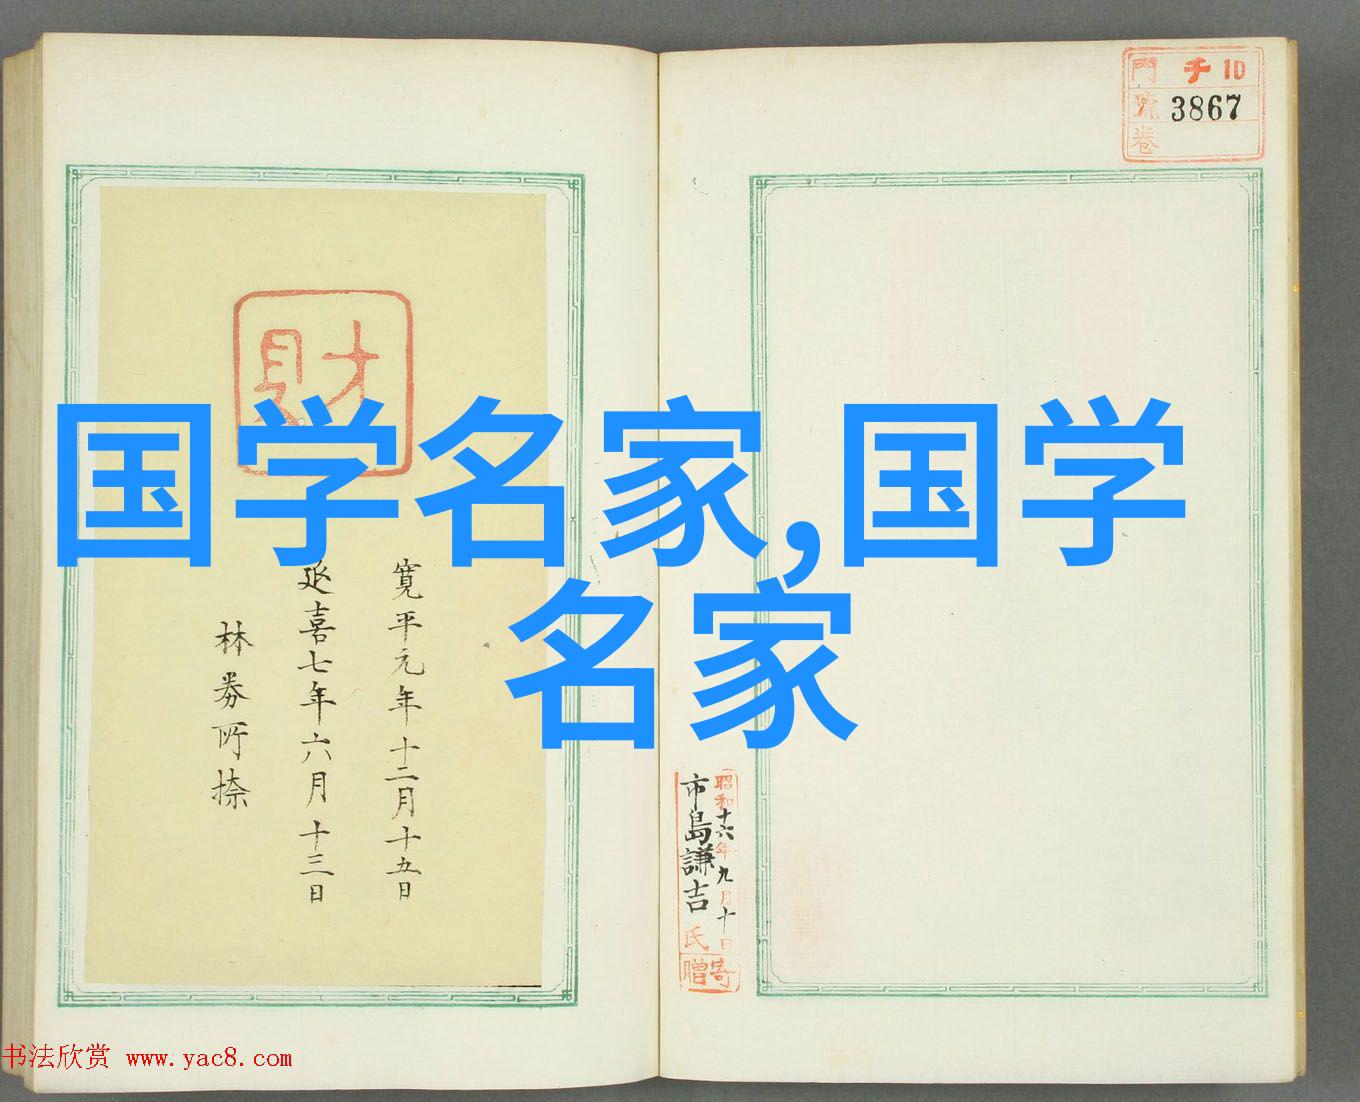 門 チ 10
號 3867
卷
財
国学名家,国学
名家
寛平元年十二月十五日
延喜七年六月十三日
林券所捺
昭和十六年九月十日
市島謙吉氏
寄贈
书法欣赏 www.yac8.com